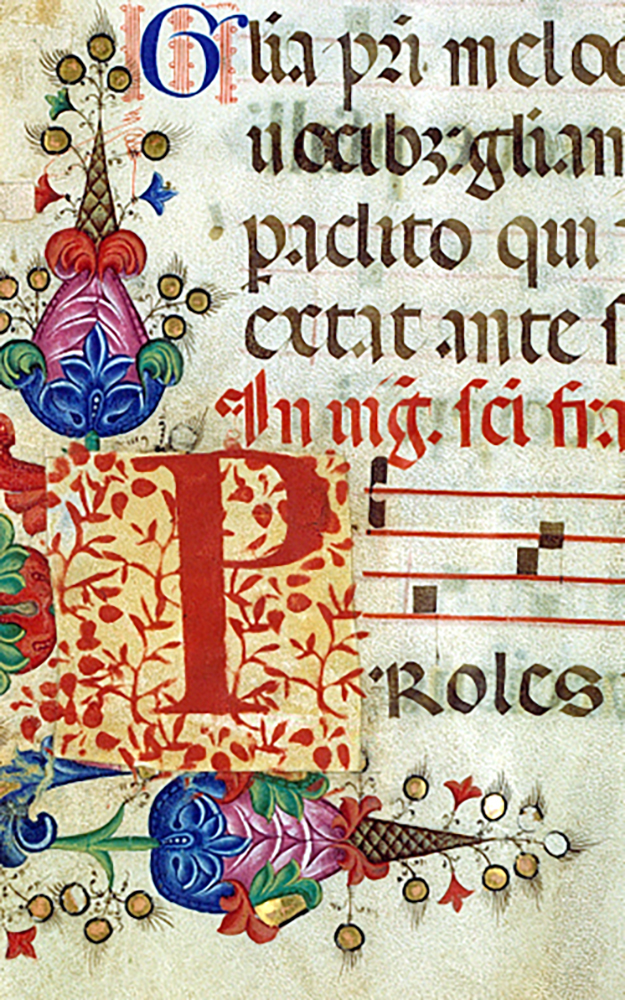 Glia p̄ri melo
uocibꝫ: gl̄ian
paclito qui
extat ante
In uig̃. sc̄i fra
PRoles